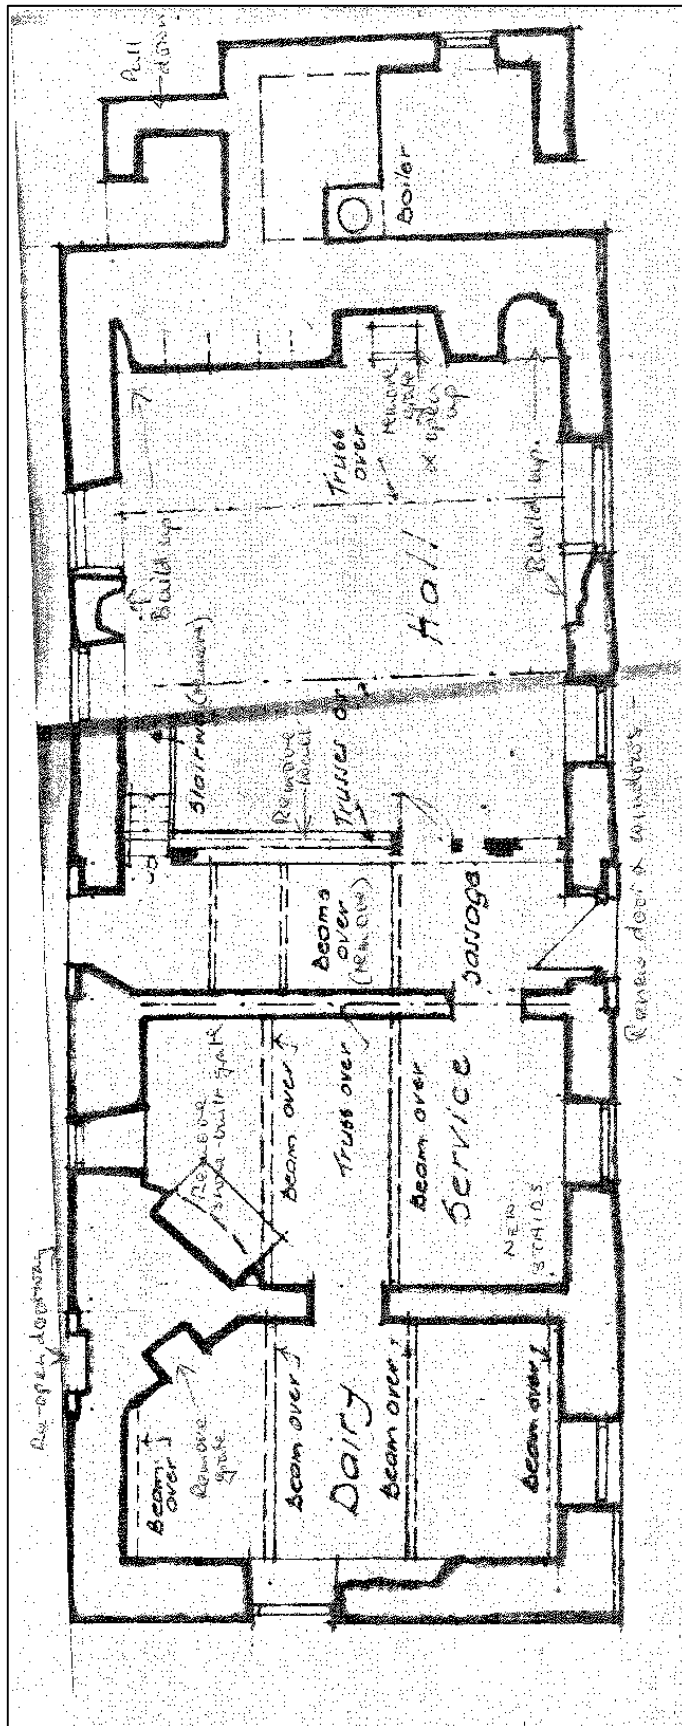 Pull
down
Boiler
remove
grate
& open
up
Truss
over
Build up.
Build up
Hall
Stairway (Remove)
Remove
panel
Trusses over
Up
Beams
over
(remove)
Passage
Renew door & windows -
Remove
grate
Beam over
Truss over
Beam over
Service
NEW
STAIRS
Re-open doorway
Remove
grate
Beam
over
Beam over
Dairy
Beam over
Beam over